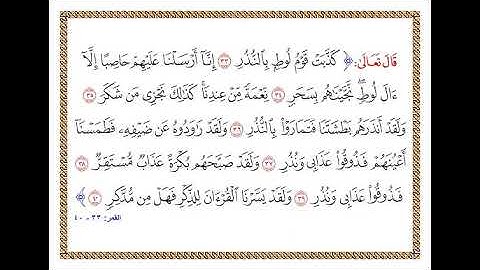 قَالَ تَعَالَىٰ: ﴿ كَذَّبَتْ قَوْمُ لُوطٍۭ بِٱلنُّذُرِ ٣٣ إِنَّآ أَرْسَلْنَا عَلَيْهِمْ حَاصِبًا إِلَّآ
ءَالَ لُوطٍۖ نَّجَّيْنَٰهُم بِسَحَرٍ ٣٤ نِّعْمَةً مِّنْ عِندِنَاۚ كَذَٰلِكَ نَجْزِى مَن شَكَرَ ٣٥
وَلَقَدْ أَنذَرَهُم بَطْشَتَنَا فَتَمَارَوْا۟ بِٱلنُّذُرِ ٣٦ وَلَقَدْ رَٰوَدُوهُ عَن ضَيْفِهِۦ فَطَمَسْنَآ
أَعْيُنَهُمْ فَذُوقُوا۟ عَذَابِى وَنُذُرِ ٣٧ وَلَقَدْ صَبَّحَهُم بُكْرَةً عَذَابٌ مُّسْتَقِرٌّ ٣٨
فَذُوقُوا۟ عَذَابِى وَنُذُرِ ٣٩ وَلَقَدْ يَسَّرْنَا ٱلْقُرْءَانَ لِلذِّكْرِ فَهَلْ مِن مُّدَّكِرٍ ٤٠ ﴾
القمر: ٣٣ - ٤٠